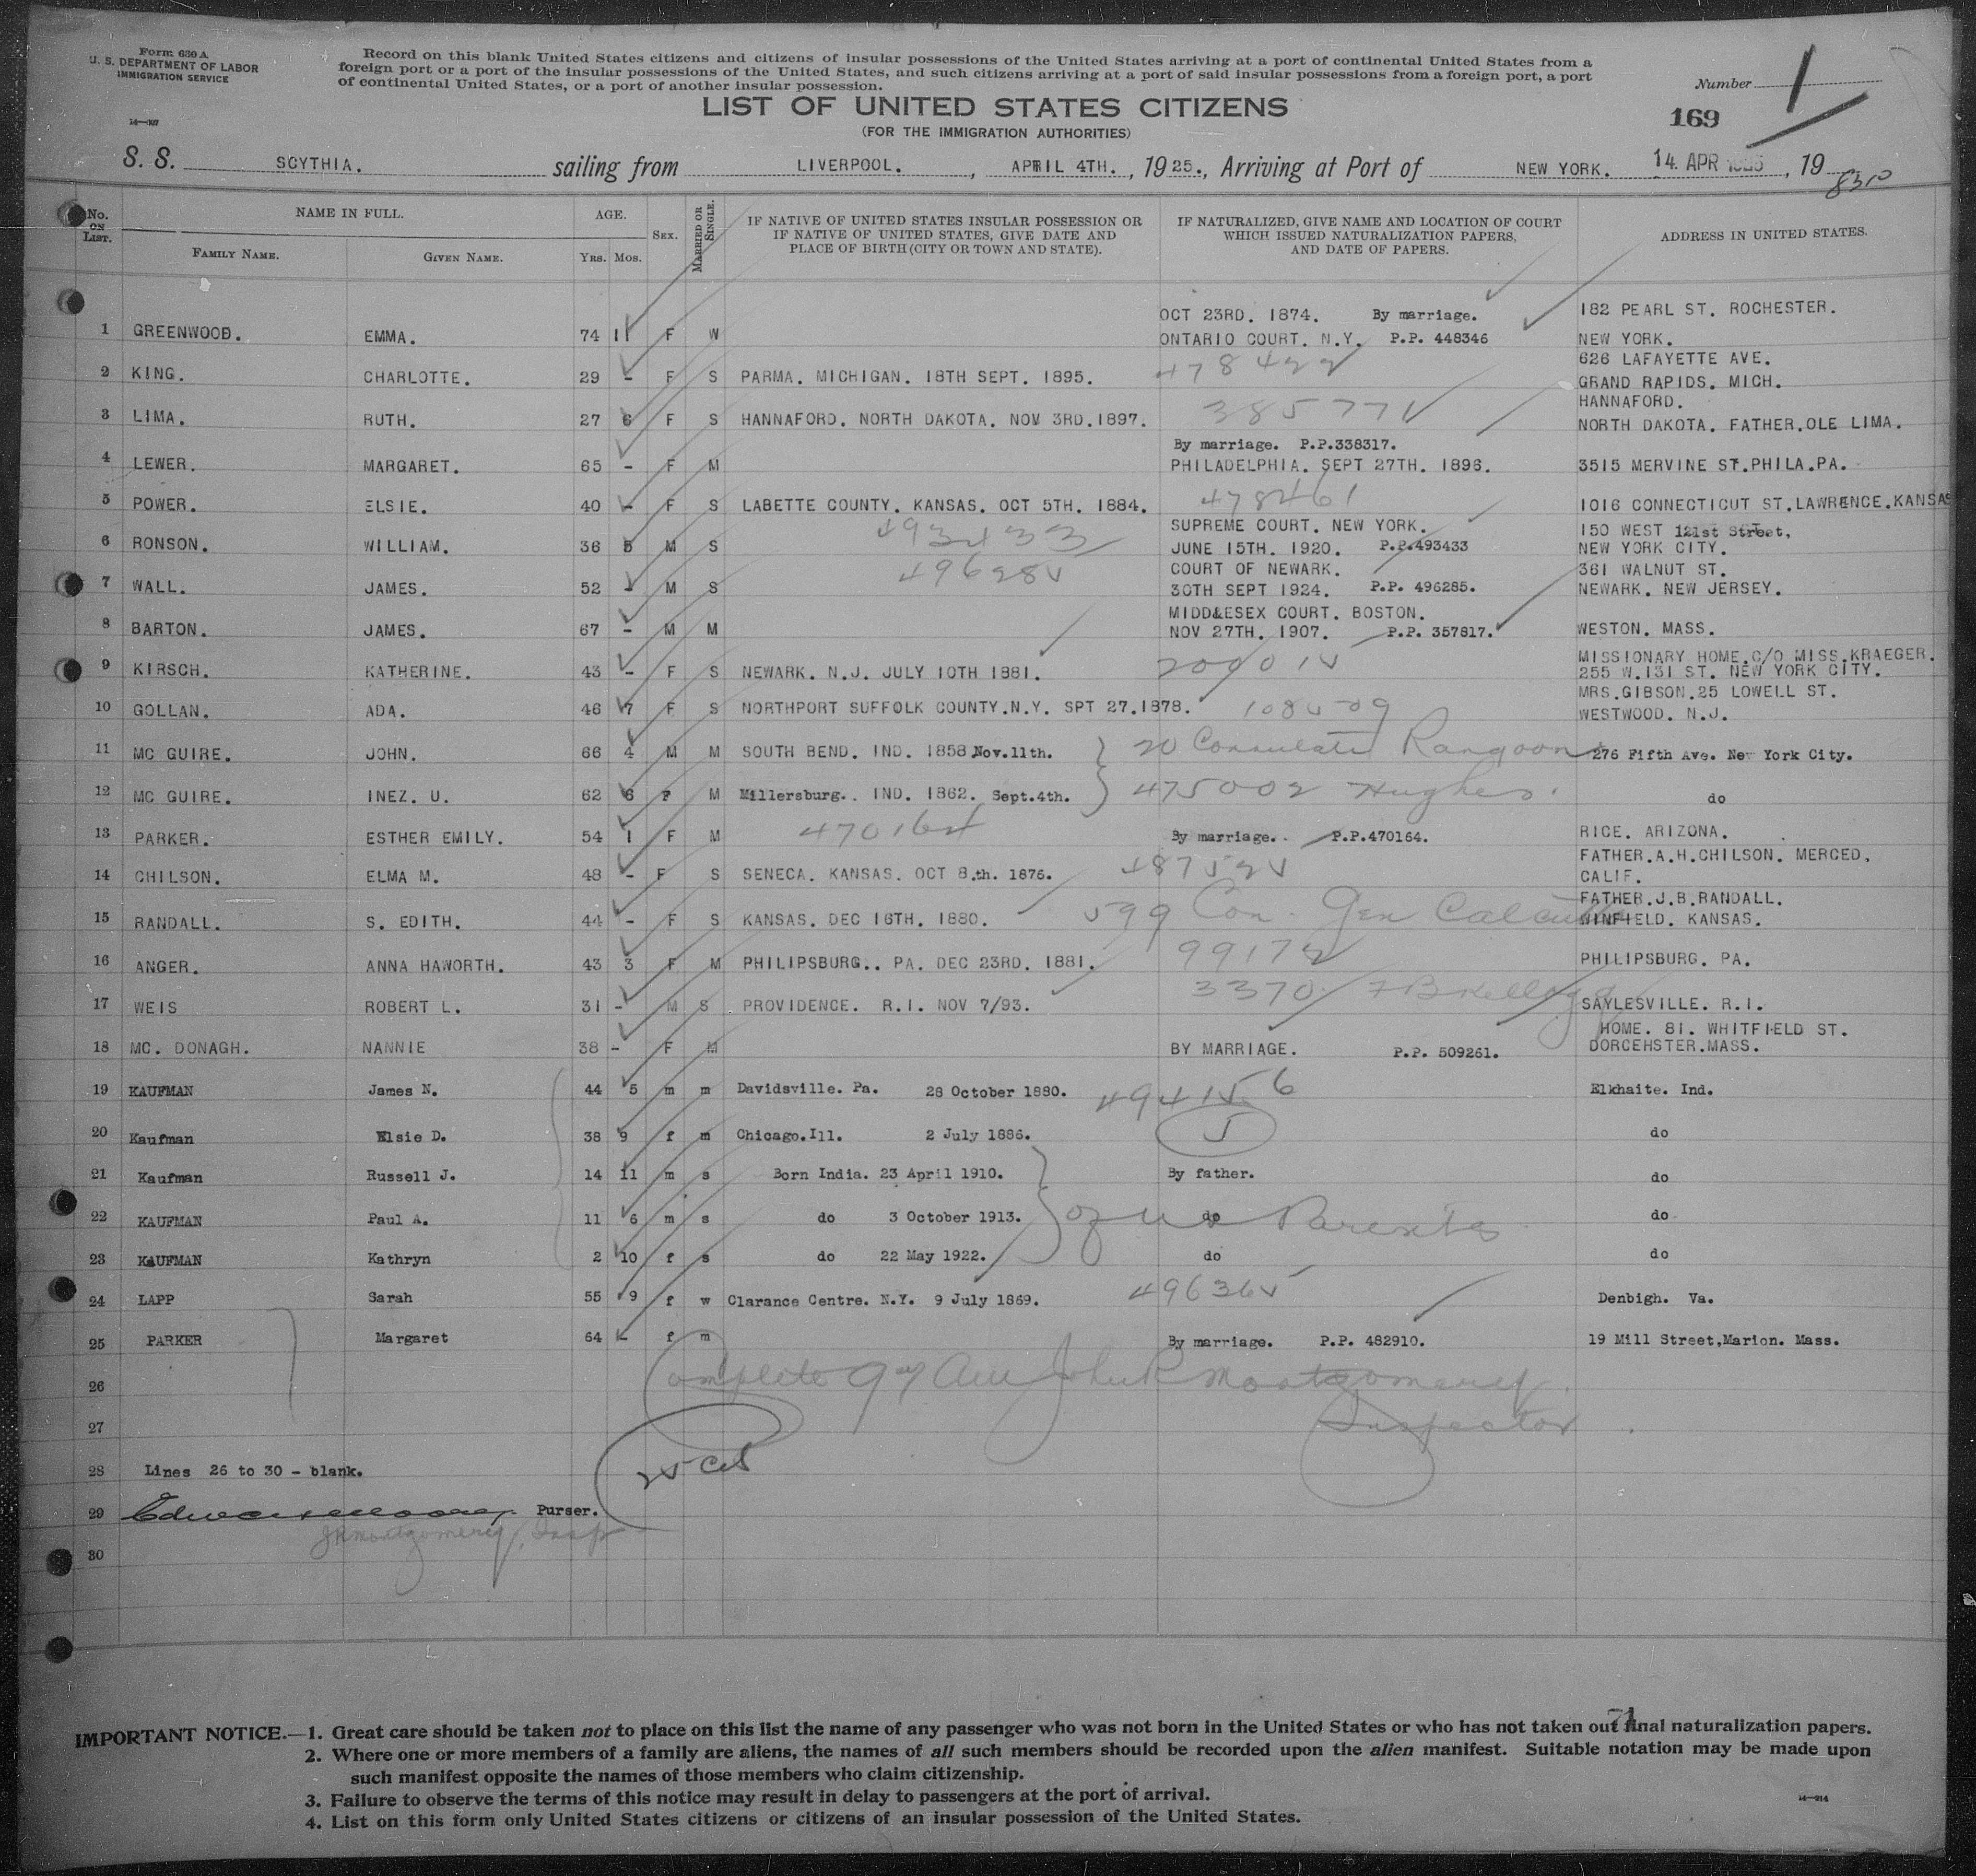 Form 630 A
U. S. DEPARTMENT OF LABOR
IMMIGRATION SERVICE
Record on this blank United States citizens and citizens of insular possessions of the United States arriving at a port of continental United States from a
foreign port or a port of the insular possessions of the United States, and such citizens arriving at a port of said insular possessions from a foreign port, a port
of continental United States, or a port of another insular possession.
Number 1
LIST OF UNITED STATES CITIZENS
169
(FOR THE IMMIGRATION AUTHORITIES)
S. S. SCYTHIA. sailing from LIVERPOOL. , APRIL 4TH. , 1925., Arriving at Port of NEW YORK. 14 APR 1925 , 19
8310
No. ON LIST. NAME IN FULL. AGE. SEX. MARRIED OR SINGLE. IF NATIVE OF UNITED STATES INSULAR POSSESSION OR IF NATIVE OF UNITED STATES, GIVE DATE AND PLACE OF BIRTH (CITY OR TOWN AND STATE). IF NATURALIZED, GIVE NAME AND LOCATION OF COURT WHICH ISSUED NATURALIZATION PAPERS, AND DATE OF PAPERS. ADDRESS IN UNITED STATES.
FAMILY NAME. GIVEN NAME. YRS. MOS.
OCT 23RD. 1874. By marriage. 182 PEARL ST. ROCHESTER.
1 GREENWOOD. EMMA. 74 11 F W ONTARIO COURT. N.Y. P.P. 448346 NEW YORK.
626 LAFAYETTE AVE.
2 KING. CHARLOTTE. 29 - F S PARMA. MICHIGAN. 18TH SEPT. 1895. 478422 GRAND RAPIDS. MICH.
HANNAFORD.
3 LIMA. RUTH. 27 6 F S HANNAFORD. NORTH DAKOTA. NOV 3RD.1897. 385771 NORTH DAKOTA. FATHER.OLE LIMA.
By marriage. P.P.338317.
4 LEWER. MARGARET. 65 - F M PHILADELPHIA. SEPT 27TH. 1896. 3515 MERVINE ST.PHILA.PA.
5 POWER. ELSIE. 40 - F S LABETTE COUNTY. KANSAS. OCT 5TH. 1884. 478461 1016 CONNECTICUT ST.LAWRENCE.KANSAS
SUPREME COURT. NEW YORK. 150 WEST 121st Street,
6 RONSON. WILLIAM. 36 5 M S 493433 JUNE 15TH. 1920. P.P.493433 NEW YORK CITY.
COURT OF NEWARK. 361 WALNUT ST.
7 WALL. JAMES. 52 - M S 496285 30TH SEPT 1924. P.P. 496285. NEWARK. NEW JERSEY.
MIDD&ESEX COURT. BOSTON.
8 BARTON. JAMES. 67 - M M NOV 27TH. 1907. P.P. 357817. WESTON. MASS.
MISSIONARY HOME.C/O MISS.KRAEGER.
9 KIRSCH. KATHERINE. 43 - F S NEWARK. N.J. JULY 10TH 1881. 255 W.131 ST. NEW YORK CITY.
MRS.GIBSON.25 LOWELL ST.
10 GOLLAN. ADA. 46 7 F S NORTHPORT SUFFOLK COUNTY.N.Y. SPT 27.1878. 108509 WESTWOOD. N.J.
11 MC GUIRE. JOHN. 66 4 M M SOUTH BEND. IND. 1858 Nov.11th. 20 Consulate Rangoon 276 Fifth Ave. New York City.
12 MC GUIRE. INEZ. U. 62 6 F M Millersburg.. IND. 1862. Sept.4th. 475002 Hughes. do
13 PARKER. ESTHER EMILY. 54 1 F M 470164 By marriage. P.P.470164. RICE. ARIZONA.
FATHER.A.H.CHILSON. MERCED,
14 CHILSON. ELMA M. 48 - F S SENECA. KANSAS. OCT 8.th. 1876. 487525 CALIF.
FATHER.J.B.RANDALL.
15 RANDALL. S. EDITH. 44 - F S KANSAS. DEC 16TH. 1880. 599 Con. Gen Calcutta WINFIELD. KANSAS.
16 ANGER. ANNA HAWORTH. 43 3 F M PHILIPSBURG.. PA. DEC 23RD. 1881. 99172 PHILIPSBURG. PA.
17 WEIS ROBERT L. 31 - M S PROVIDENCE. R.I. NOV 7/93. 3370 F B Kellogg SAYLESVILLE. R.I.
HOME. 81. WHITFIELD ST.
18 MC. DONAGH. NANNIE 38 - F M BY MARRIAGE. P.P. 509261. DORCEHSTER.MASS.
19 KAUFMAN James N. 44 5 m m Davidsville. Pa. 28 October 1880. 494156 Elkhaite. Ind.
20 Kaufman Elsie D. 38 9 f m Chicago.Ill. 2 July 1886. 5 do
21 Kaufman Russell J. 14 11 m s Born India. 23 April 1910. By father. do
22 KAUFMAN Paul A. 11 6 m s do 3 October 1913. do of US Parents do
23 KAUFMAN Kathryn 2 10 f s do 22 May 1922. do do
24 LAPP Sarah 55 9 f w Clarance Centre. N.Y. 9 July 1869. 496365 Denbigh. Va.
25 PARKER Margaret 64 - f m By marriage. P.P. 482910. 19 Mill Street,Marion. Mass.
26 Complete John R Montgomery
27 Inspector
28 Lines 26 to 30 - blank. 25 Cit
29 Purser.
JR Montgomery, Insp
30
71
IMPORTANT NOTICE.—1. Great care should be taken not to place on this list the name of any passenger who was not born in the United States or who has not taken out final naturalization papers.
2. Where one or more members of a family are aliens, the names of all such members should be recorded upon the alien manifest. Suitable notation may be made upon
such manifest opposite the names of those members who claim citizenship.
3. Failure to observe the terms of this notice may result in delay to passengers at the port of arrival.
4. List on this form only United States citizens or citizens of an insular possession of the United States.